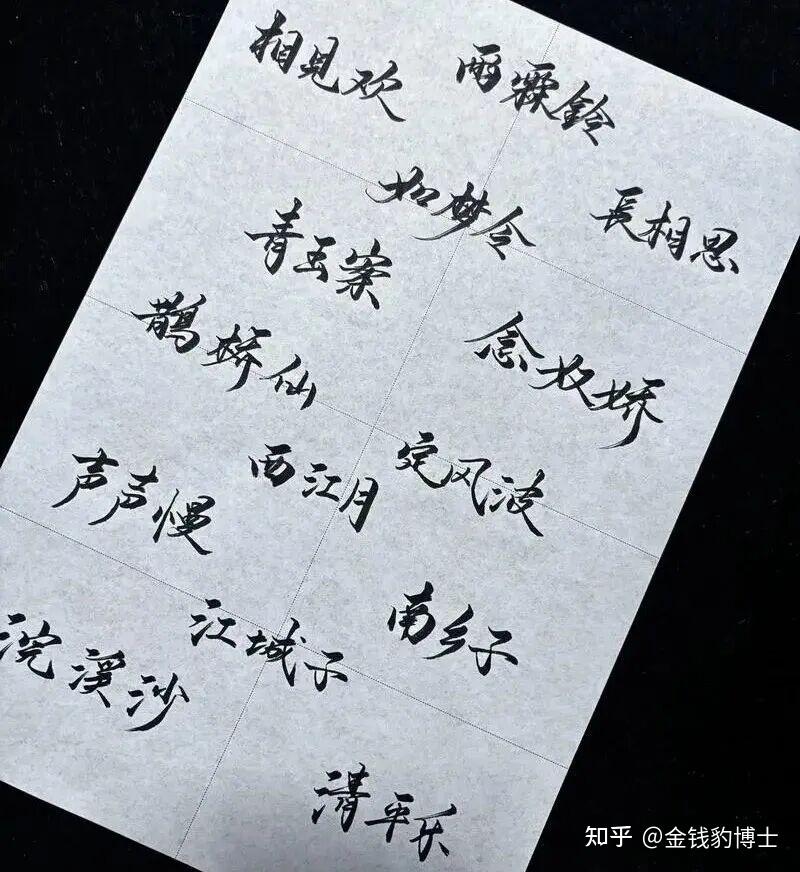 相见欢
雨霖鈴
如梦令
長相思
青玉案
鹊桥仙
念奴娇
西江月
定风波
声声慢
江城子
南乡子
浣溪沙
清平乐
知乎 @金钱豹博士